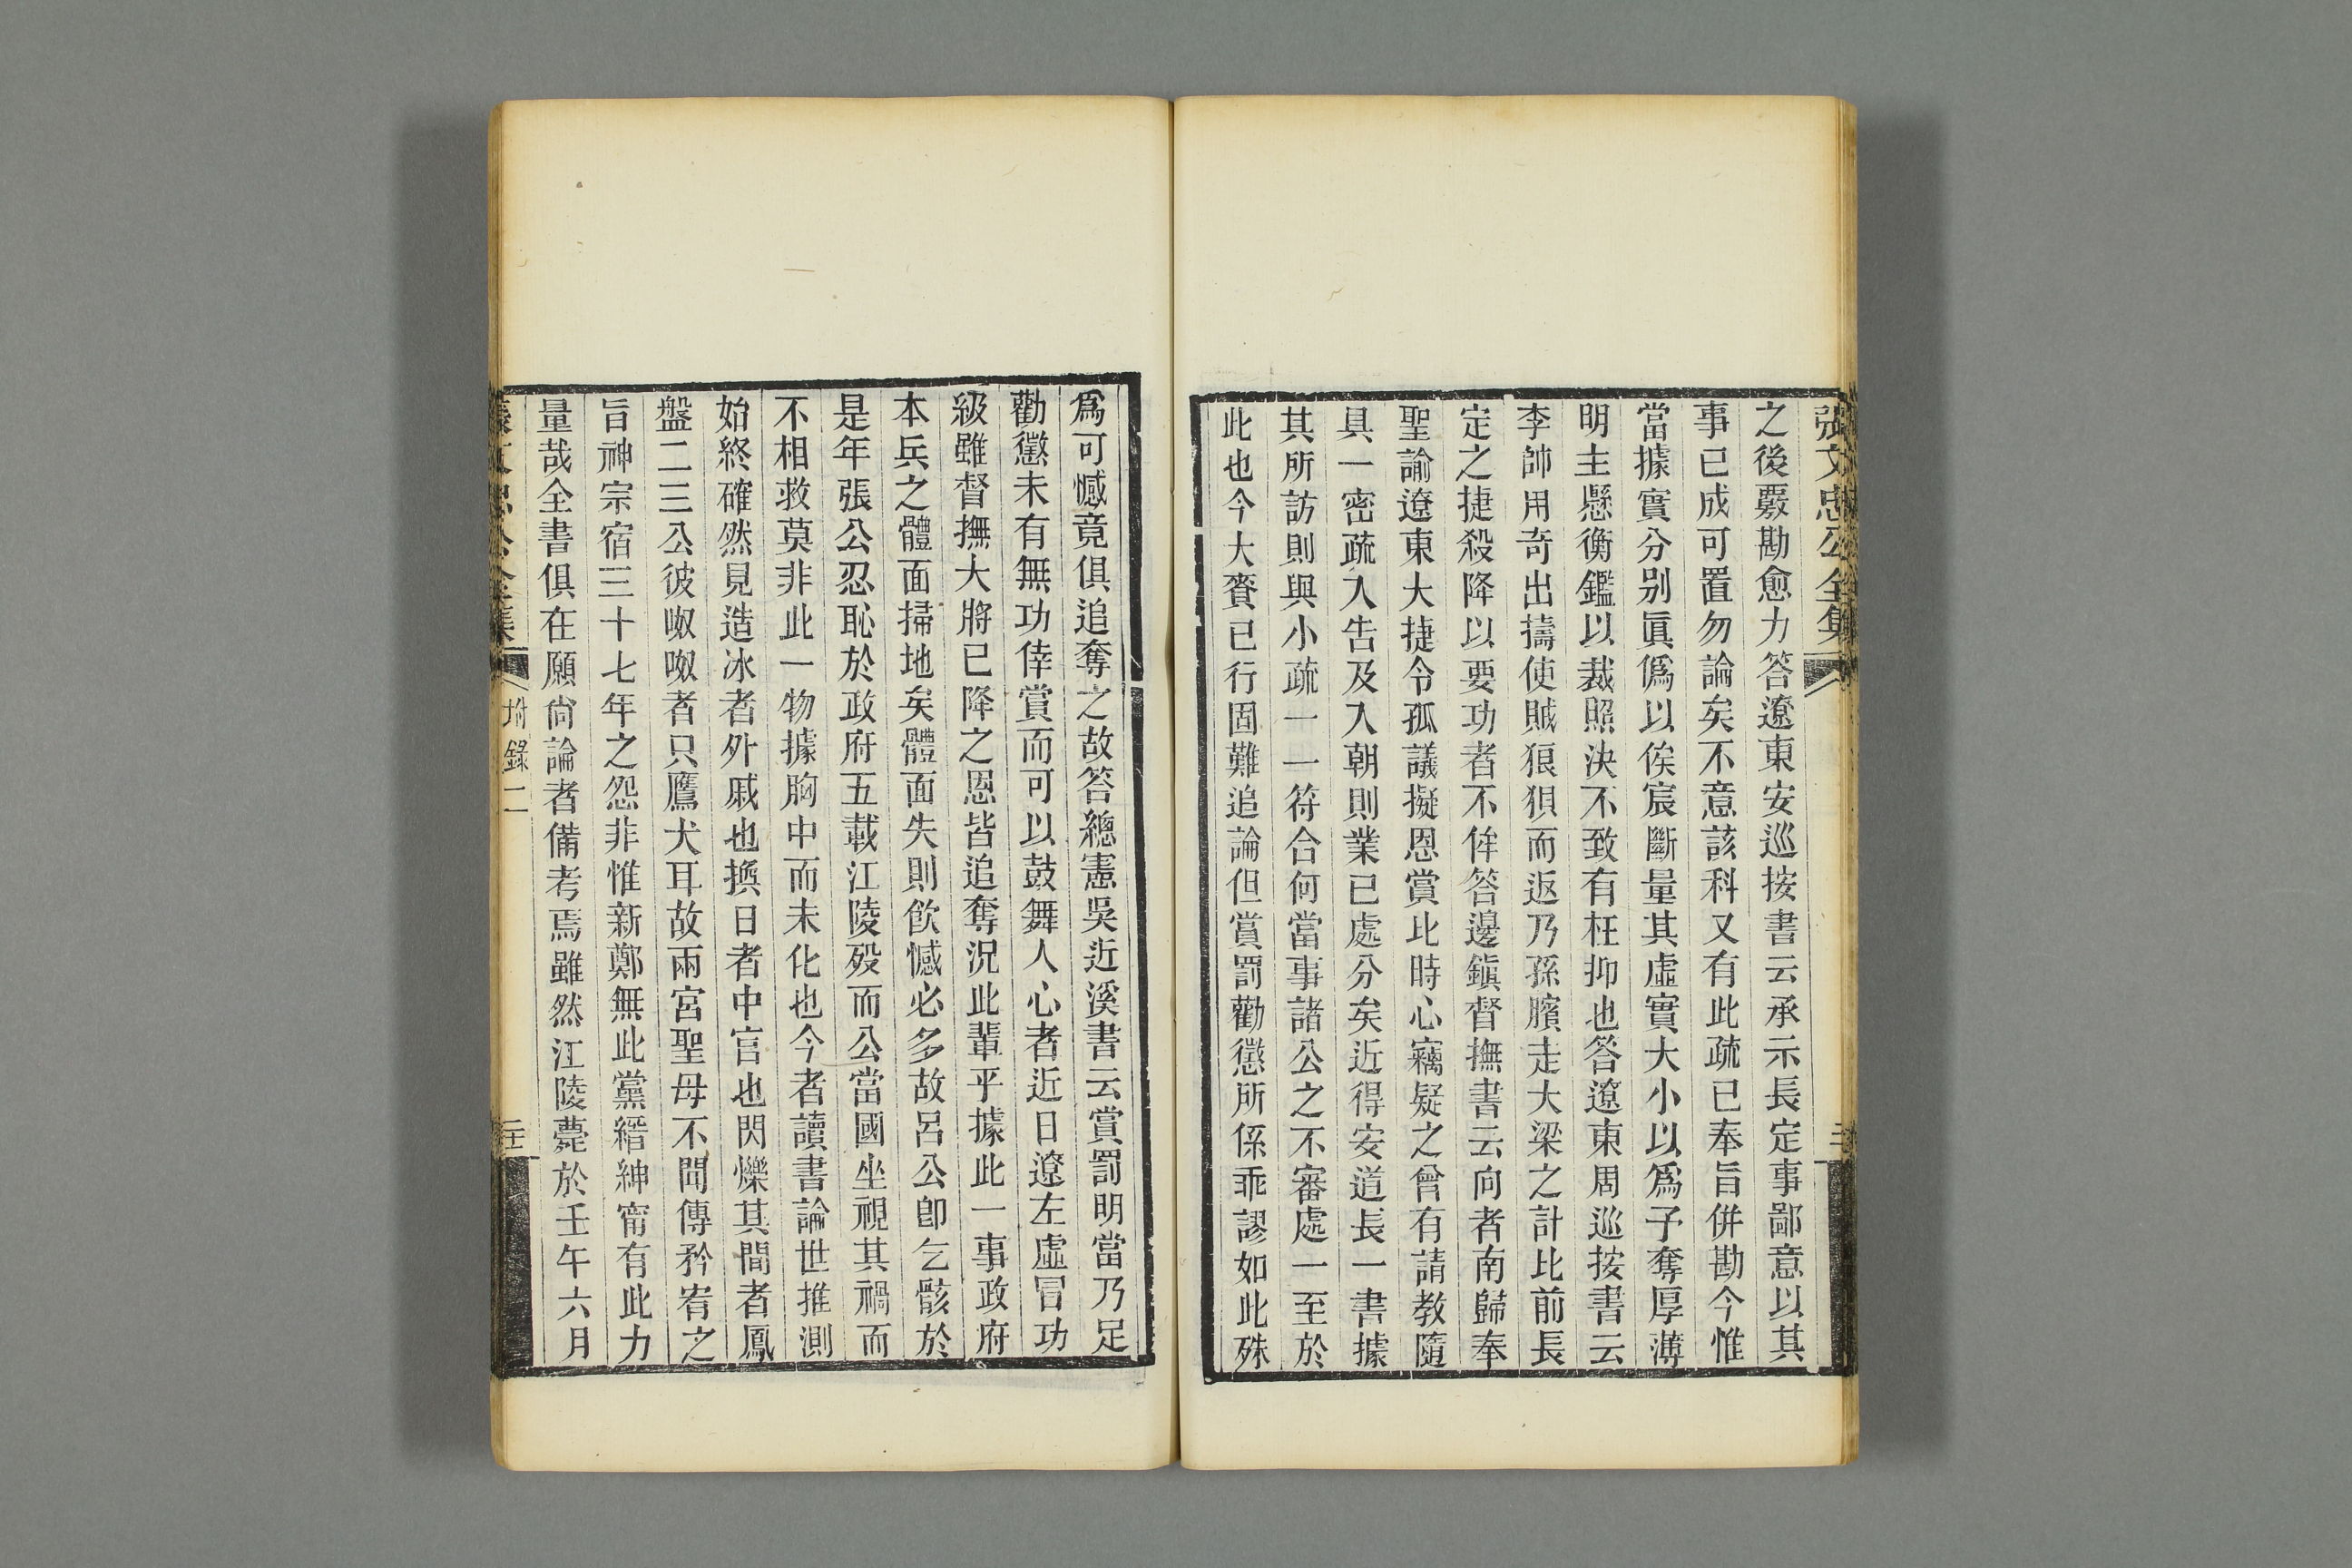 張文忠公全集
之後覈勘愈力答遼東安巡按書云承示長定事鄙意以其
事已成可置勿論矣不意該科又有此疏已奉旨併勘今惟
當據實分別眞僞以俟宸斷量其虛實大小以爲予奪厚薄
明主懸衡鑑以裁照決不致有枉抑也答遼東周巡按書云
李帥用奇出擣使賊狼狽而返乃孫臏走大梁之計比前長
定之捷殺降以要功者不侔答邊鎭督撫書云向者南歸奉
聖諭遼東大捷令孤議擬恩賞比時心竊疑之曾有請教隨
具一密疏入告及入朝則業已處分矣近得安道長一書據
其所訪則與小疏一一符合何當事諸公之不審處一至於
此也今大賚已行固難追論但賞罰勸懲所係乖謬如此殊
爲可憾竟俱追奪之故答總憲吳近溪書云賞罰明當乃足
勸懲未有無功倖賞而可以鼓舞人心者近日遼左虛冒功
級雖督撫大將已降之恩皆追奪況此輩乎據此一事政府
本兵之體面掃地矣體面失則飮憾必多故呂公卽乞骸於
是年張公忍恥於政府五載江陵歿而公當國坐視其禍而
不相救莫非此一物據胸中而未化也今者讀書論世推測
始終確然見造冰者外戚也換日者中官也閃爍其間者鳳
盤二三公彼呶呶者只鷹犬耳故兩宮聖母不聞傳矜宥之
旨神宗宿三十七年之怨非惟新鄭無此黨縉紳甯有此力
量哉全書俱在願尙論者備考焉雖然江陵薨於壬午六月
張文忠公全集
附錄二